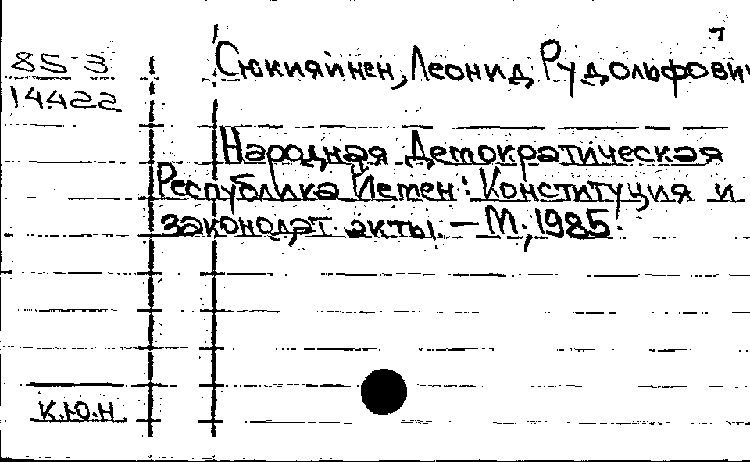 85-3
14422
Сюкияйнен, Леонид Рудольфович
Народная Демократическая
Республика Йемен: Конституция и
законодат. акты. — М., 1985.
К.Ю.Н